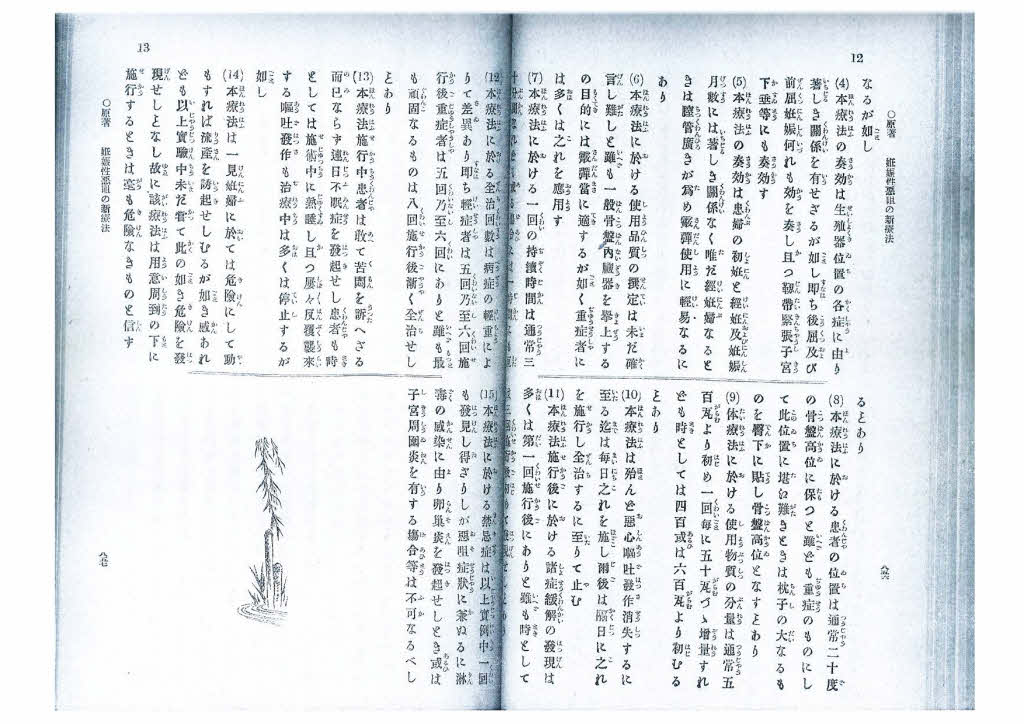 12
○原著 妊娠性惡阻の新療法
なるが如し
(4)本療法の奏効は生殖器位置の各症に由り
著しき關係を有せざるが如し即ち後屈及び
前屈妊娠何れも効を奏し且つ靱帶緊張子宮
下垂等にも奏効す
(5)本療法の奏効は患婦の初妊と經妊及妊娠
月數には著しき關係なく唯だ經妊婦なると
きは膣管廣きが爲め霰彈使用に輕易なるに
あり
(6)本療法に於ける使用品質の撰定は未だ確
言し難しと雖も一般骨盤內臟器を擧上する
の目的には霰彈當に適するが如く重症者に
は多くは之れを應用す
(7)本療法に於ける一回の持續時間は通常三
るとあり
(8)本療法に於ける患者の位置は通常二十度
の骨盤高位に保つと雖ども重症のものにし
て此位置に堪ゐ難きときは枕子の大なるも
のを臀下に貼し骨盤高位となすとあり
(9)体療法に於ける使用物質の分量は通常五
百瓦より初め一回每に五十瓦づゝ增量すれ
ども時としては四百或は六百瓦より初むる
とあり
(10)本療法は殆んど惡心嘔吐發作消失するに
至る迄は每日之れを施し爾後は隔日に之れ
を施し全治するに至りて止む
(11)本療法施行後に於ける諸症緩解の發現は
多くは第一回施行後にありと雖も時として
八六
13
○原著 妊娠性惡阻の新療法
(12)本療法に於る全治回數は病症の輕重によ
りて差異あり即ち輕症者は五回乃至六回施
行後重症者は五回乃至六回にありと雖も最
も頑固なるものは八回施行後漸く全治せし
とあり
(13)本療法施行中患者は敢て苦悶を訴へざる
而已ならず連日不眠症を發起せし患者も時
としては施術中に熟睡し且つ屢々反覆襲來
する嘔吐發作も治療中は多くは停止するが
如し
(14)本療法は一見妊婦に於ては危險にして動
もすれば流產を誘起せしむるが如き感あれ
ども以上實驗中未だ曾て此の如き危險を發
現せしとなし故に該療法は用意周到の下に
施行するときは毫も危險なきものと信す
(15)本療法に於ける禁忌症は以上實例中一回
も發見し得ざりしが惡咀症狀に兼ぬるに淋
毒の感染に由り卵巢炎を發起せしとき或は
子宮周圍炎を有する塲合等は不可なるべし
八七